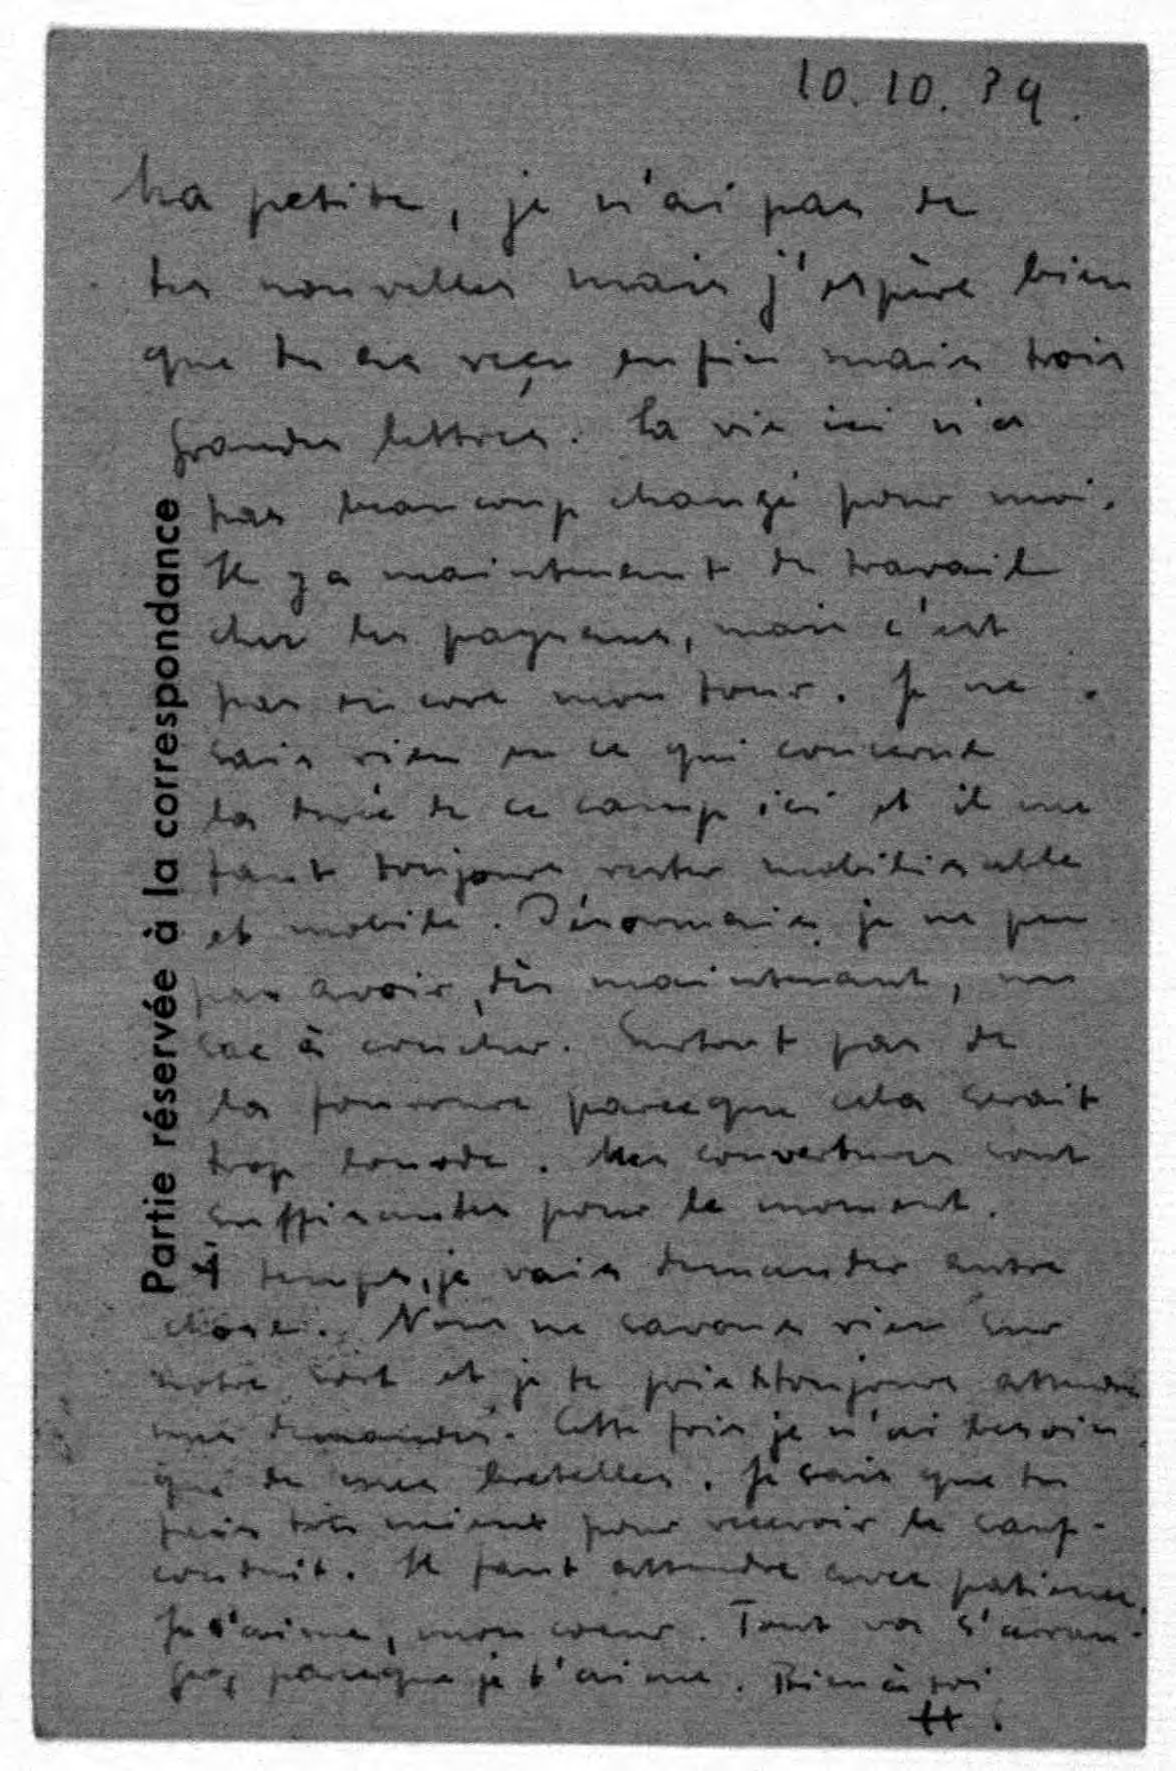 10.10.39.
Ma petite, je n'ai pas de
tes nouvelles mais j'espère bien
que tu as reçu enfin mais trois
grandes lettres. La vie ici n'a
pas beaucoup changé pour moi.
Il y a maintenent du travail
chez les paysans, mais c'est
pas encore mon tour. Je ne
sais rien en ce qui concerne
la durée de ce camp ici et il me
faut toujours rester mobilisable
et mobile. Désormais je ne peu
pas avoir, dès maintenant, un
sac à coucher. Surtout pas de
la fourrure parceque cela serait
trop lourde. Mes couvertures sont
suffisantes pour le moment.
temps, je vais demander autre
chose. Nous ne savons rien sur
notre sort et je te prie toujours attendre
mes demandes. Cette fois je n'ai besoin
que de mes bretelles. Je sais que tu
fais très mieux pour recevoir le sauf-
conduit. Il faut attendre avec patience.
Je t'aime, mon coeur. Tout va s'arran-
ger, parceque je t'aime. Bien à toi
H.
Partie réservée à la correspondance